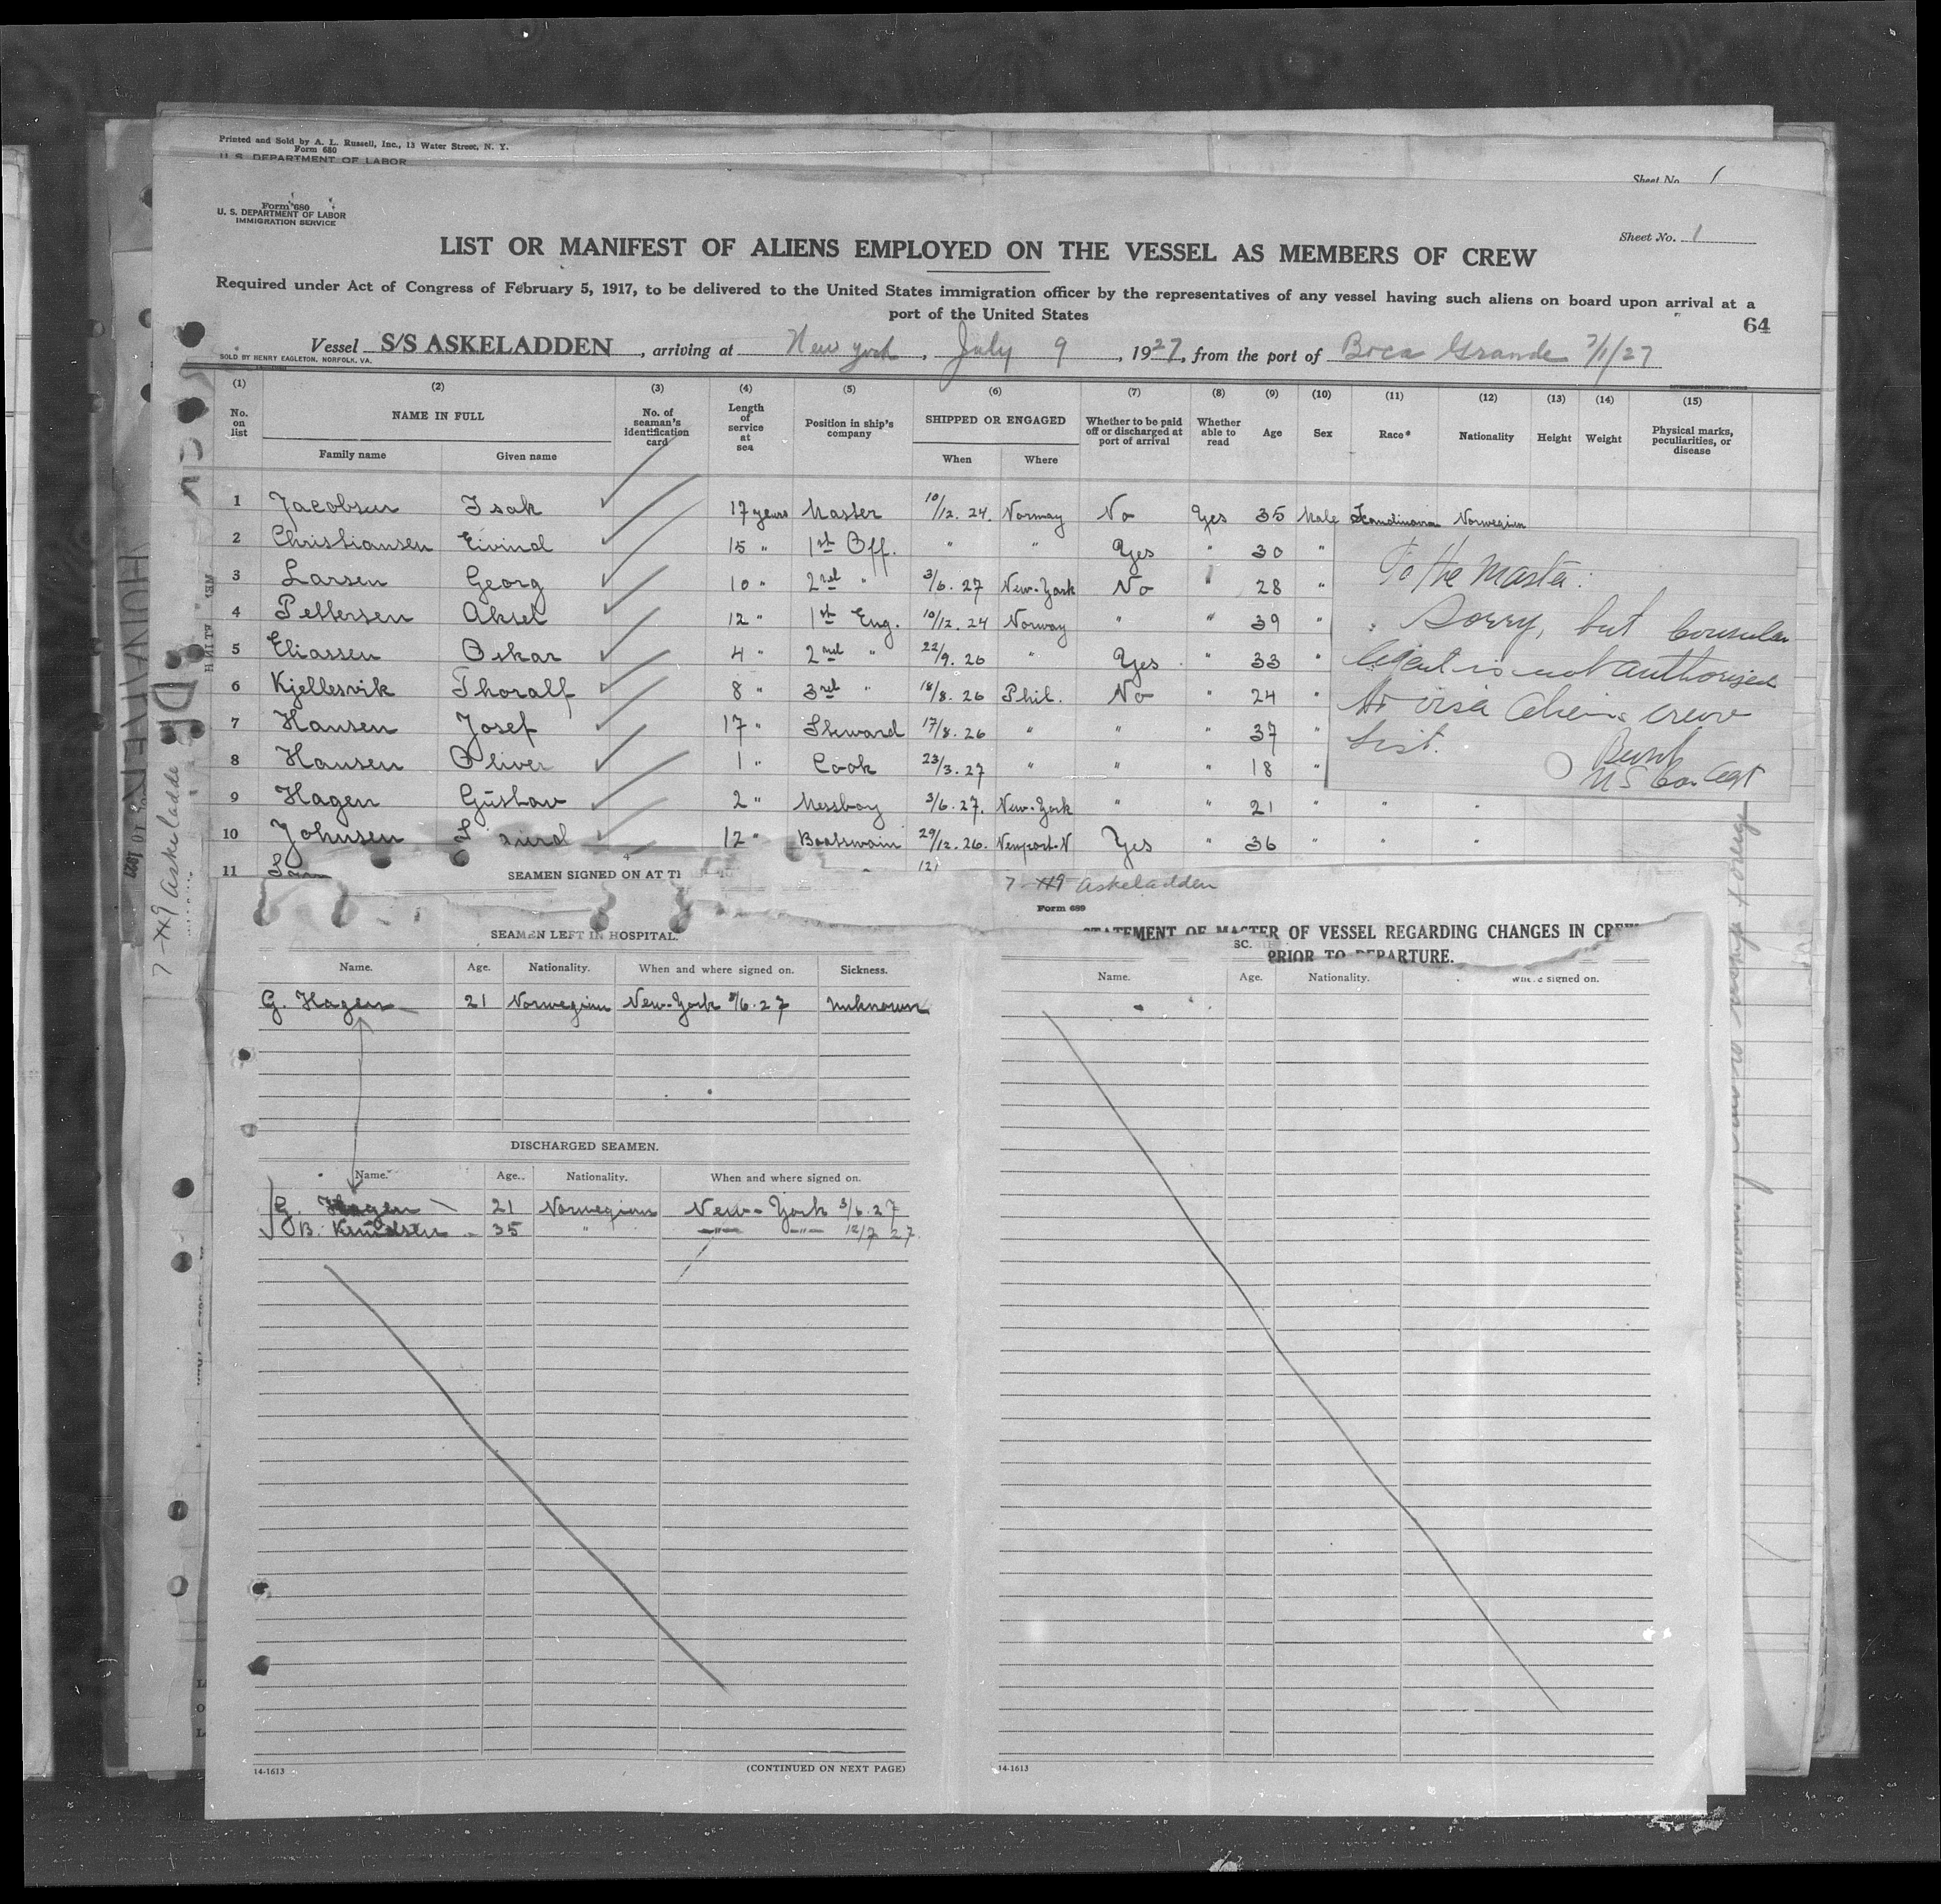 Printed and Sold by A. L. Russell, Inc., 13 Water Street, N. Y.
Form 680
U. S. DEPARTMENT OF LABOR
Sheet No. 1
Form 680
U. S. DEPARTMENT OF LABOR
IMMIGRATION SERVICE
Sheet No. 1
LIST OR MANIFEST OF ALIENS EMPLOYED ON THE VESSEL AS MEMBERS OF CREW
Required under Act of Congress of February 5, 1917, to be delivered to the United States immigration officer by the representatives of any vessel having such aliens on board upon arrival at a
port of the United States
64
Vessel S/S ASKELADDEN, arriving at New york, July 9, 1927, from the port of Boca Grande 7/1/27
SOLD BY HENRY EAGLETON, NORFOLK, VA.
(1) (2) (3) (4) (5) (6) (7) (8) (9) (10) (11) (12) (13) (14) (15)
No. on list NAME IN FULL No. of seaman's identification card Length of service at sea Position in ship's company SHIPPED OR ENGAGED Whether to be paid off or discharged at port of arrival Whether able to read Age Sex Race* Nationality Height Weight Physical marks, peculiarities, or disease
Family name Given name When Where
1 Jacobsen Isak 17 years Master 10/12. 24. Norway No Yes 35 Male Scandinavia Norwegian
2 Christiansen Eivind 15 " 1st Off. " " Yes " 30 "
3 Larsen Georg 10 " 2nd " 3/6. 27 New-York No " 28 "
4 Pettersen Aksel 12 " 1st Eng. 10/12. 24 Norway " " 39 "
5 Eliassen Oskar 4 " 2nd " 22/9. 26 " Yes " 33 "
6 Kjellesvik Thoralf 8 " 3rd " 18/8. 26 Phil. No " 24 "
7 Hansen Josef 17 " Steward 17/8. 26 " " " 37 "
8 Hansen Oliver 1 " Cook 23/3. 27 " " " 18 "
9 Hagen Gústav 2 " Messboy 3/6. 27. New-York " " 21 " " "
10 Johnsen 12 " Boatswain 29/12. 26. Newport-N Yes " 36 " " "
11
To the Master:
Sorry, but Consular
Agent is not authorized
to visa Aliens crew
List.
US Con Agt
SEAMEN SIGNED ON AT
7 Askeladden
Form 689
STATEMENT OF MASTER OF VESSEL REGARDING CHANGES IN CREW
PRIOR TO DEPARTURE.
SEAMEN LEFT IN HOSPITAL.
Name. Age. Nationality. When and where signed on. Sickness.
G. Hagen 21 Norwegian New-York 3/6.27 Unknown
DISCHARGED SEAMEN.
Name. Age. Nationality. When and where signed on.
G. Hagen 21 Norwegian New-York 3/6.27
B. Knudsen 35 " —"— —"— 12/7 27.
14-1613
(CONTINUED ON NEXT PAGE)
Name. Age. Nationality. where signed on.
14-1613